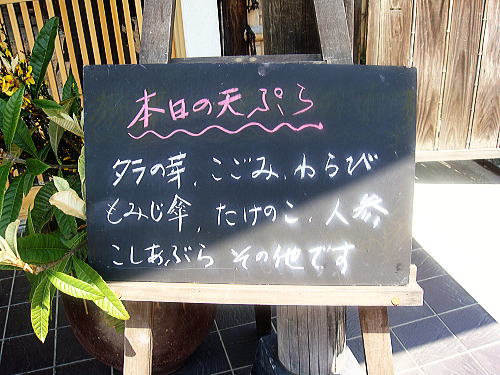 本日の天ぷら
タラの芽、こごみ、わらび
もみじ傘、たけのこ、人参
こしあぶら その他です